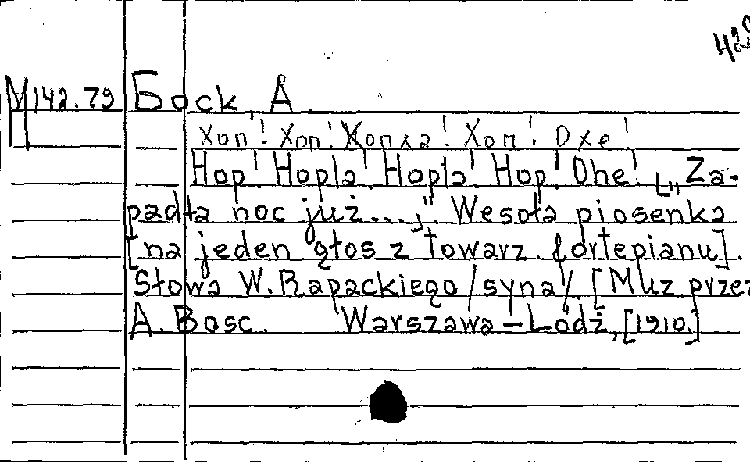 M142.79 Боск, А.
Хоп! Хоп! Хопла! Хоп! Охе!
Hop! Hopla! Hopla! Hop! Ohe! [„Za-
padła noc już...;" Wesoła piosenka
[na jeden głos z towarz. fortepianu].
Słowa W. Rapackiego /syna/. [Muz. przez
A. Bosc. Warszawa – Łódź, [1910.]